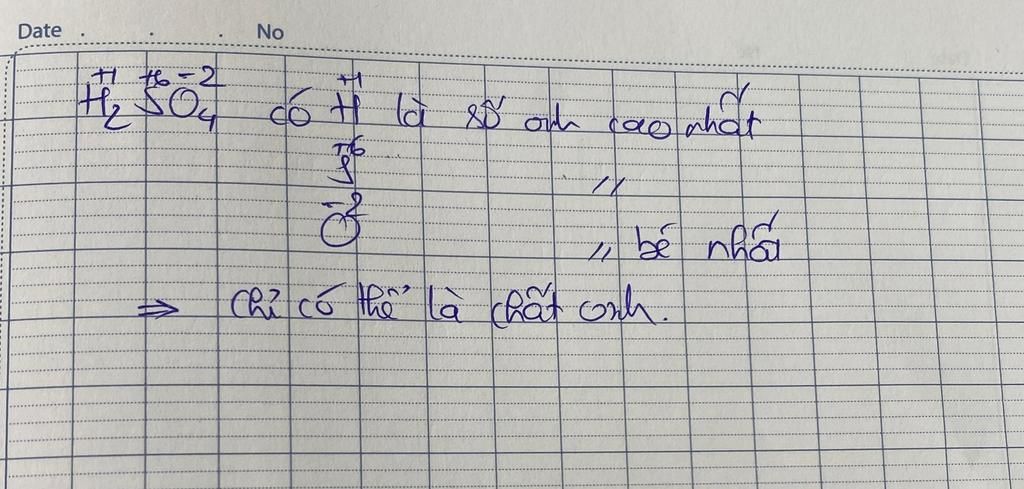 Date . . . No
+1 +6 -2
H₂SO₄ có H⁺¹ là số oxh cao nhất
S⁺⁶ "
O⁻² " bé nhất
⇒ chỉ có thể là chất oxh.